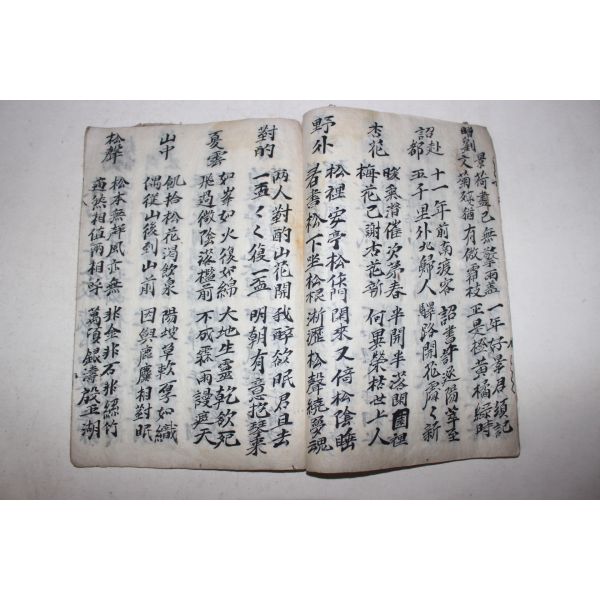 贈劉景文
荷盡已無擎雨盖 一年好景君須記
菊殘猶有傲霜枝 正是橙黃橘綠時
詔赴都
十一年前南渡客 詔書許逐陽至
五千里外北歸人 驛路開花處々新
杏花
暖氣潛催次第春 半開半落閑園裡
梅花已謝杏花新 何異榮枯世上人
野外
松裡安亭松作門 閑來又倚松陰睡
看書松下坐松根 淅瀝松聲繞夢魂
對酌
兩人對酌山花開 我醉欲眠君且去
一盃々々復一盃 明朝有意抱琴來
夏雲
如峯如火復如綿 大地生靈乾欲死
飛過微陰落檻前 不成霖雨謾遮天
山中
飢拾松花渴飲泉 陽坡草軟厚如織
偶從山後到山前 因與鹿麛相對眠
松聲
松本無聲風亦無 非金非石非絲竹
適然相値兩相呼 萬頃銀濤殷五湖